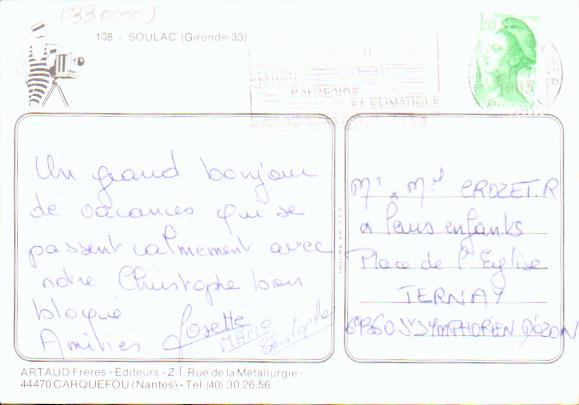 033 00009
108 - SOULAC (Gironde-33)
1,80
STATION
BALNEAIRE
ET CLIMATIQUE
Un grand bonjour
de vacances qui se
passent calmement avec
notre Christophe bien
bloqué
Amitiés Josette
Mario
Christophe
Imprimé en CEE
Mr & Me CROZET.R
& leurs enfants
Place de l'Eglise
TERNAY
69360 St SYMPHORIEN D'OZON
ARTAUD Freres - Editeurs - Z.I. Rue de la Métallurgie -
44470 CARQUEFOU (Nantes) - Tel (40) 30 26.56